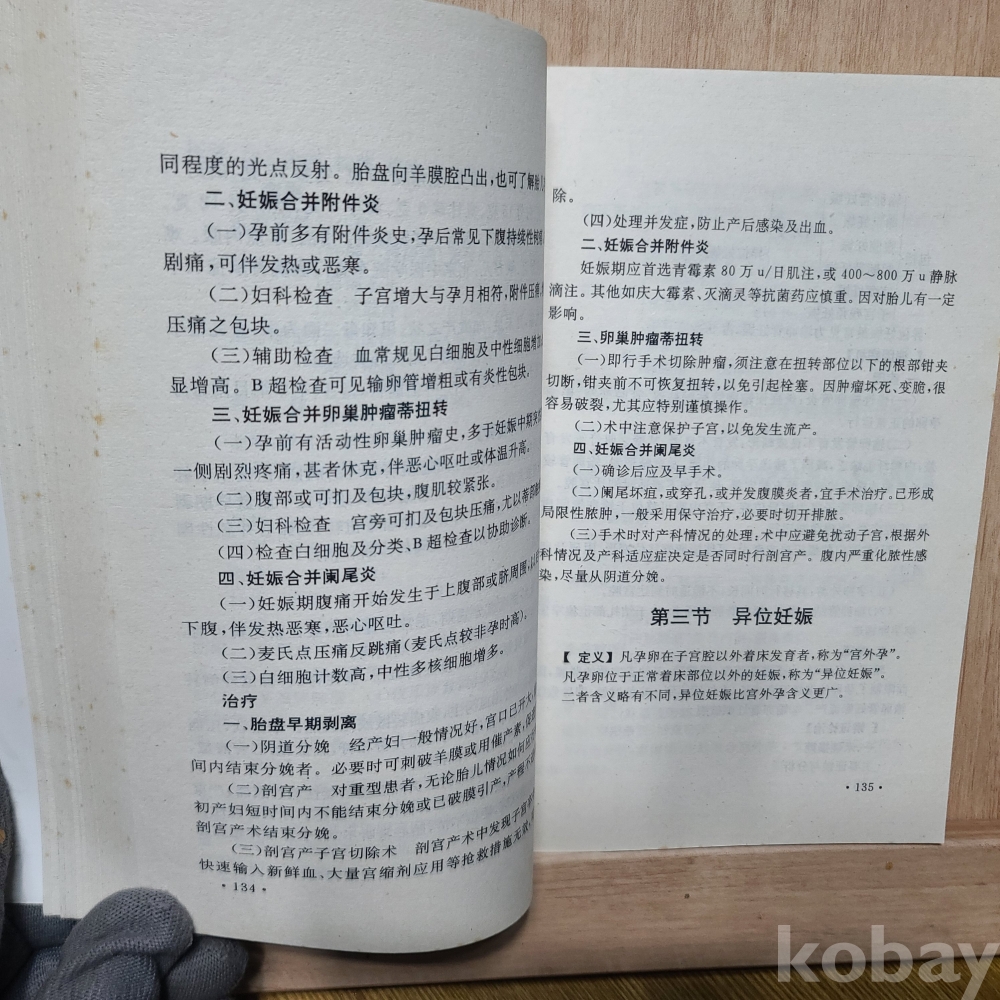 同程度的光点反射。胎盘向羊膜腔凸出，也可了解胎
二、妊娠合并附件炎
（一）孕前多有附件炎史，孕后常见下腹持续性
剧痛，可伴发热或恶寒。
（二）妇科检查　子宫增大与孕月相符，附件压痛
压痛之包块。
（三）辅助检查　血常规见白细胞及中性细胞增加
显增高。B超检查可见输卵管增粗或有炎性包块。
三、妊娠合并卵巢肿瘤蒂扭转
（一）孕前有活动性卵巢肿瘤史，多于妊娠中期突
一侧剧烈疼痛，甚者休克，伴恶心呕吐或体温升高。
（二）腹部或可扪及包块，腹肌较紧张。
（三）妇科检查　宫旁可扪及包块压痛，尤以蒂部
（四）检查白细胞及分类、B超检查以协助诊断。
四、妊娠合并阑尾炎
（一）妊娠期腹痛开始发生于上腹部或脐周围，
下腹，伴发热恶寒，恶心呕吐。
（二）麦氏点压痛反跳痛（麦氏点较非孕时高）。
（三）白细胞计数高，中性多核细胞增多。
治疗
一、胎盘早期剥离
（一）阴道分娩　经产妇一般情况好，宫口已开大，
间内结束分娩者。必要时可刺破羊膜或用催产素，
（二）剖宫产　对重型患者，无论胎儿情况如何应
初产妇短时间内不能结束分娩或已破膜引产，产程不
剖宫产术结束分娩。
（三）剖宫产子宫切除术　剖宫产术中发现子宫
快速输入新鲜血、大量宫缩剂应用等抢救措施无效，
·134·
除。
（四）处理并发症，防止产后感染及出血。
二、妊娠合并附件炎
妊娠期应首选青霉素80万u/日肌注，或400～800万u静脉
滴注。其他如庆大霉素、灭滴灵等抗菌药应慎重。因对胎儿有一定
影响。
三、卵巢肿瘤蒂扭转
（一）即行手术切除肿瘤，须注意在扭转部位以下的根部钳夹
切断，钳夹前不可恢复扭转，以免引起栓塞。因肿瘤坏死、变脆，很
容易破裂，尤其应特别谨慎操作。
（二）术中注意保护子宫，以免发生流产。
四、妊娠合并阑尾炎
（一）确诊后应及早手术。
（二）阑尾坏疽，或穿孔，或并发腹膜炎者，宜手术治疗。已形成
局限性脓肿，一般采用保守治疗，必要时切开排脓。
（三）手术时对产科情况的处理：术中应避免扰动子宫，根据外
科情况及产科适应症决定是否同时行剖宫产。腹内严重化脓性感
染，尽量从阴道分娩。
第三节　异位妊娠
【定义】凡孕卵在子宫腔以外着床发育者，称为“宫外孕”。
凡孕卵位于正常着床部位以外的妊娠，称为“异位妊娠”。
二者含义略有不同，异位妊娠比宫外孕含义更广。
·135·
kobay